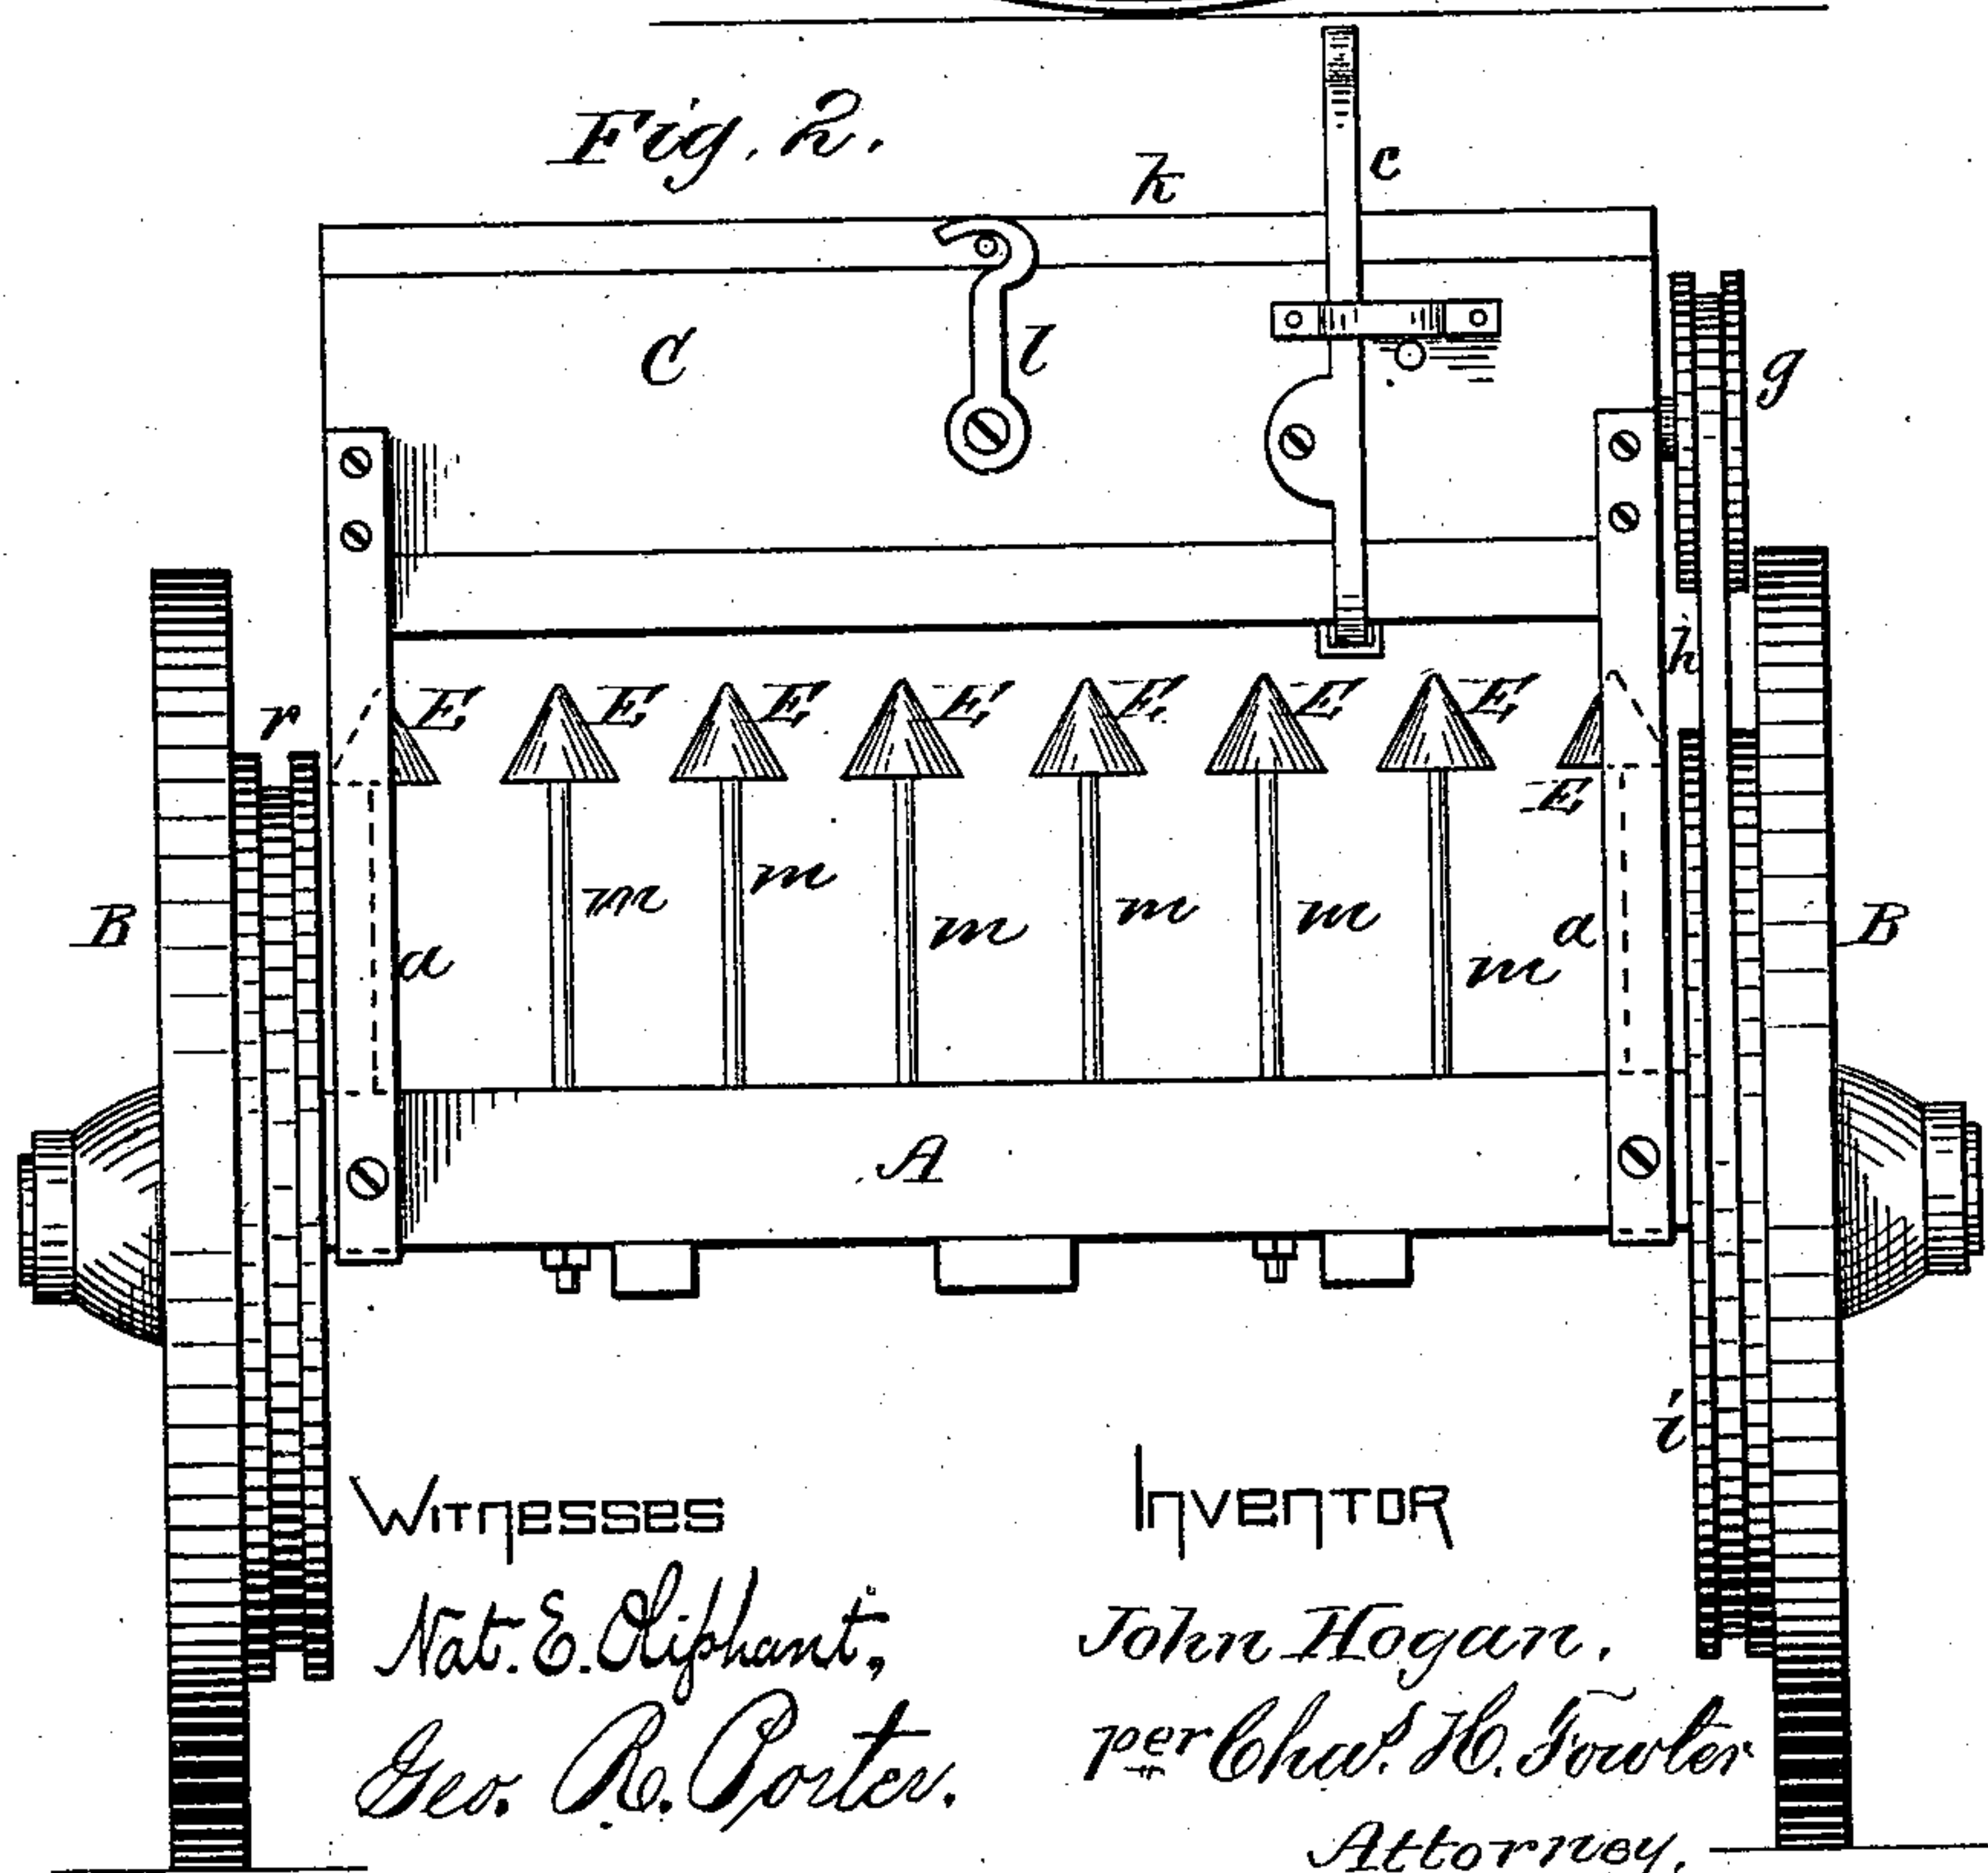 Fig. 2.
k
c
C
l
g
h
r
E E E E E E E
E
m m m m m m
B a a B
A
i
Witnesses
Nat. E. Oliphant,
Geo. R. Porter.
Inventor
John Hogan.
per Chas. H. Fowler
Attorney.